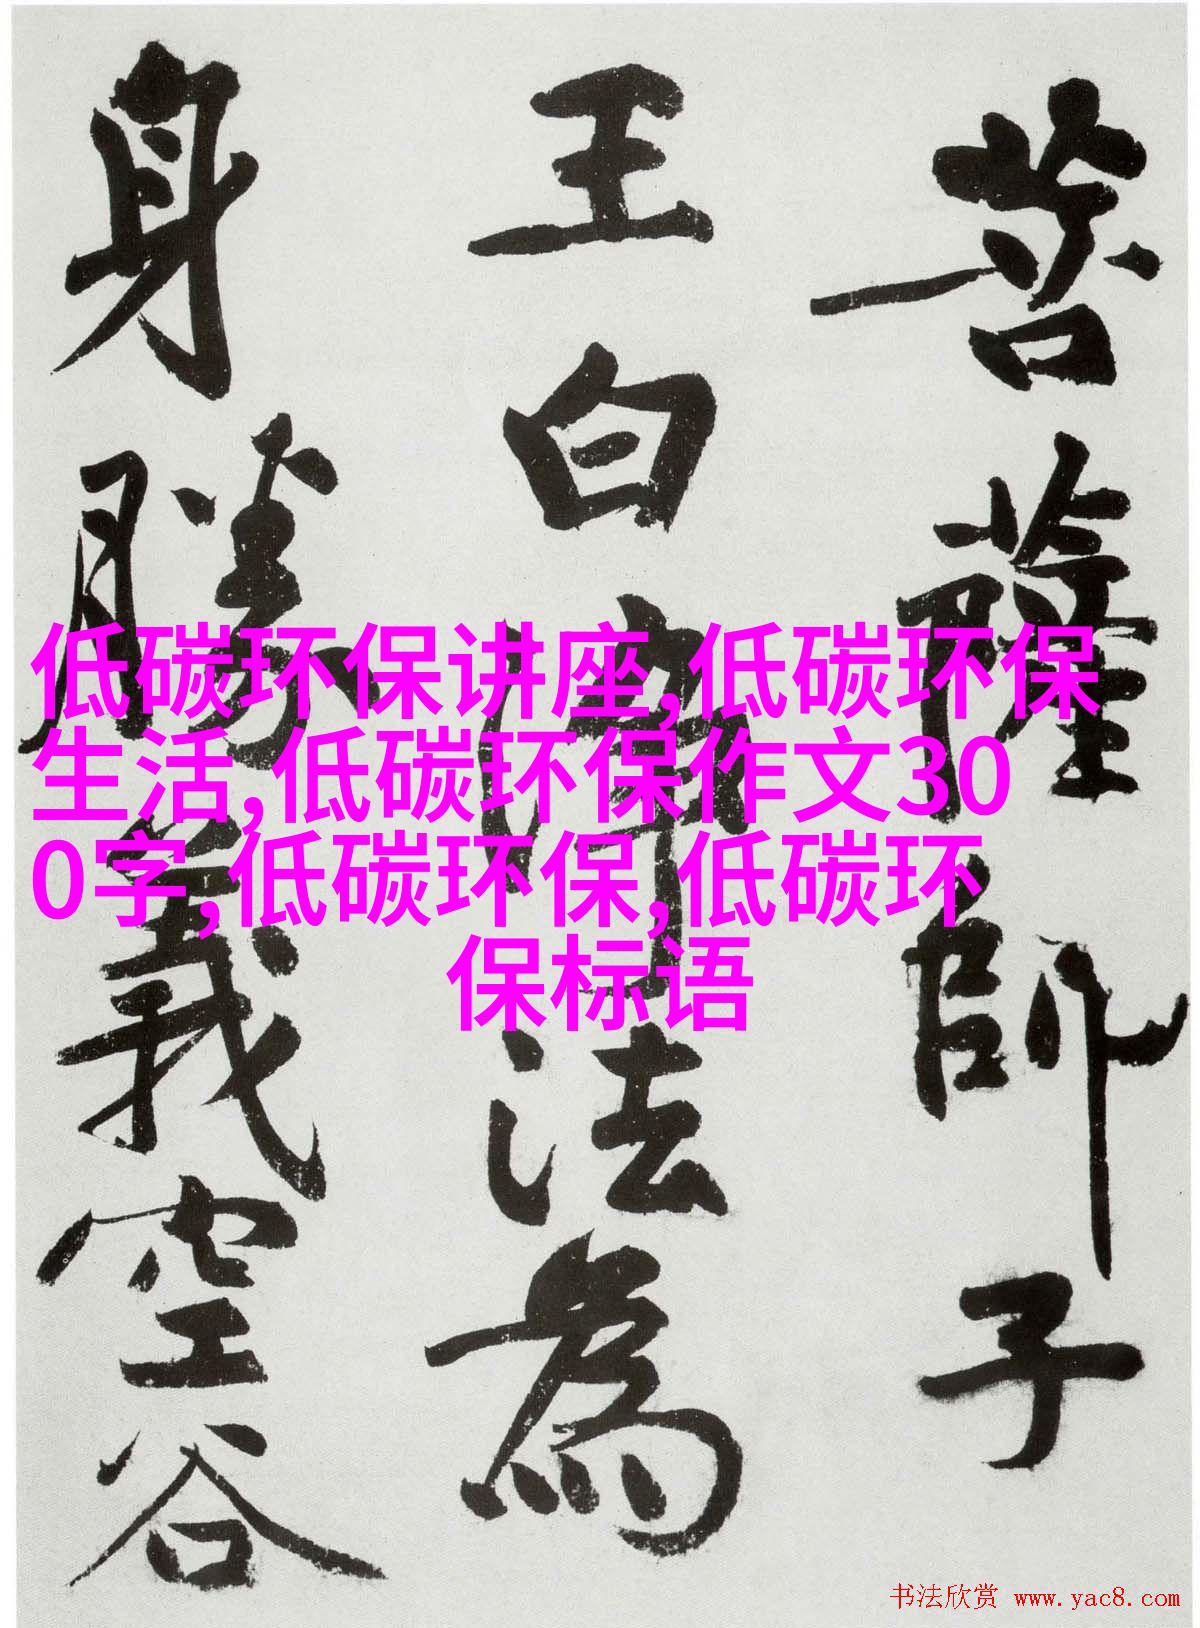 菩薩師子
王白淨法為
身勝義空谷
低碳环保讲座,低碳环保
生活,低碳环保作文30
0字,低碳环保,低碳环
保标语
书法欣赏 www.yac8.com